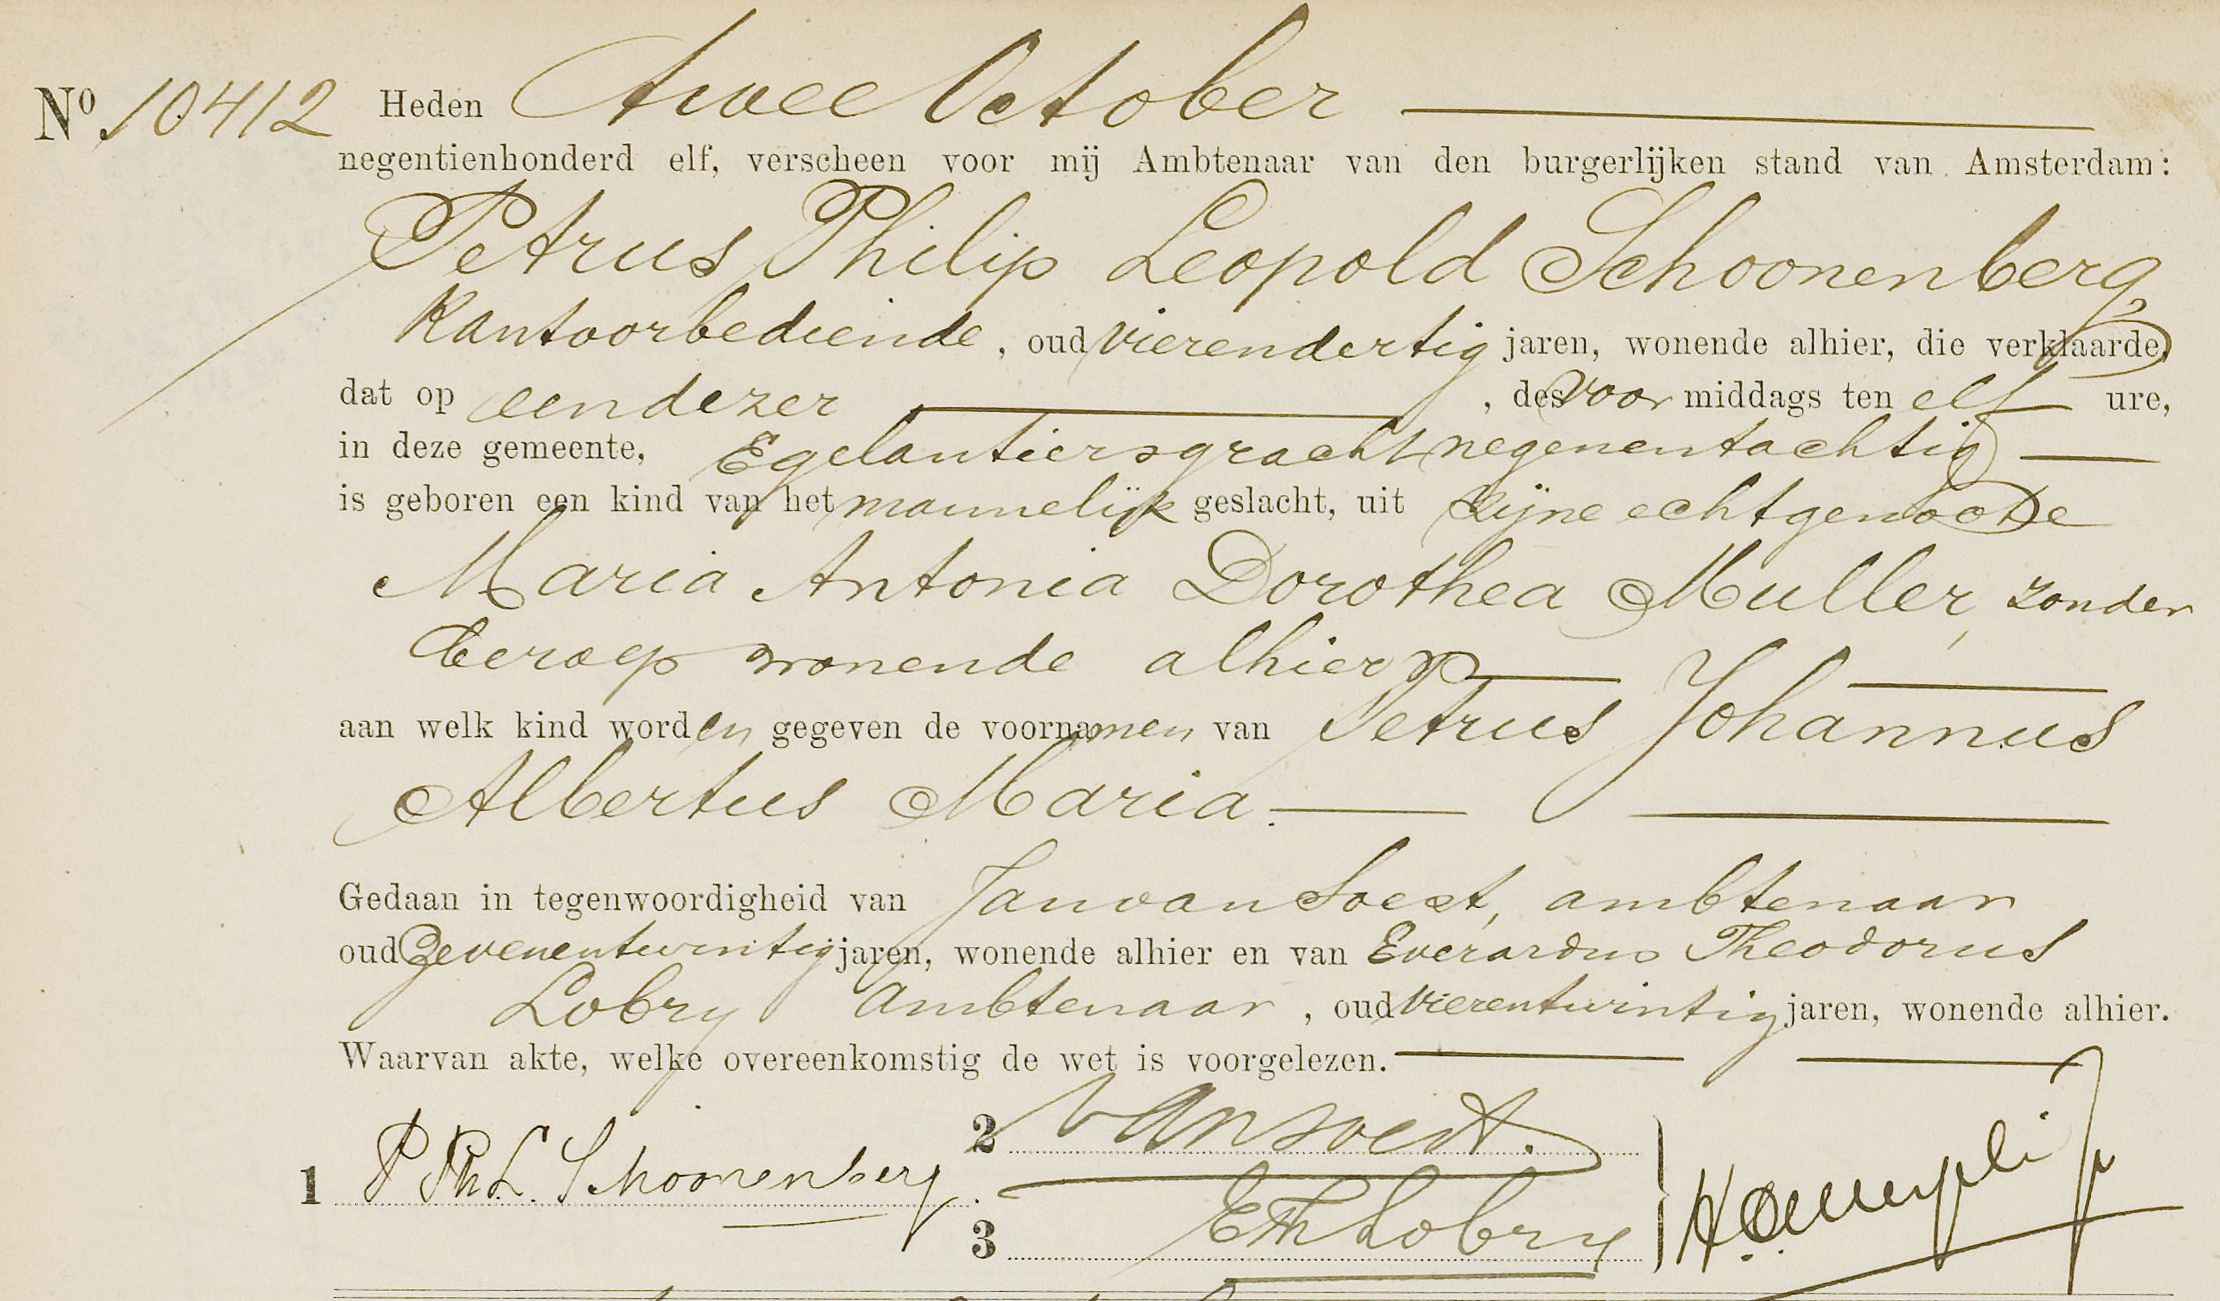 No. 10412 Heden twee October
negentienhonderd elf, verscheen voor mij Ambtenaar van den burgerlijken stand van Amsterdam:
Petrus Philip Leopold Schoonenberg,
Kantoorbediende, oud vierendertig jaren, wonende alhier, die verklaarde,
dat op een dezer, des voormiddags ten elf ure,
in deze gemeente, Egelantiersgracht negenentachtig
is geboren een kind van het mannelijk geslacht, uit zijne echtgenoote
Maria Antonia Dorothea Muller, zonder
beroep wonende alhier
aan welk kind worden gegeven de voornamen van Petrus Johannus
Albertus Maria
Gedaan in tegenwoordigheid van Jan van Soest, ambtenaar
oud Zevenentwintig jaren, wonende alhier en van Everardus Theodorus
Lobry Ambtenaar, oud vierentwintig jaren, wonende alhier.
Waarvan akte, welke overeenkomstig de wet is voorgelezen.
1 P Ph L. Schoonenberg.
2 van Soest.
3 E Th Lobry